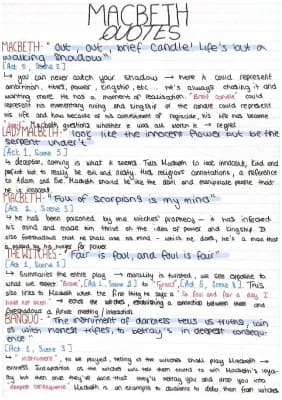 MACBETH
QUOTES
MACBETH- "Out, out, brief candle! Life's but a
walking shadow"
[Act 5, Scene 5]
↳ you can never catch your shadow → Here it could represent
ambition, titles, power, kingship, etc... He's always chasing it and
wanting more. He has a moment of realisation. "Brief candle" could
represent his momentary ruling and kingship of the candle could represent
his life and how because of his commitment of regicide, his life has become
"brief". Macbeth questions whether it was all worth it → regret
LADY MACBETH- "look like the innocent flower but be the
serpent under't"
[Act 1, Scene 5]
↳ deception, coming is what it seems. Tells Macbeth to look innocent, kind and
perfect but to really be evil and nasty. Has religious connotations, a reference
to Adam and Eve. Macbeth should be like the devil and manipulate people that
he is innocent
MACBETH- "Full of scorpions is my mind"
[Act 3, Scene 2]
↳ he has been poisoned by the witches' prophecy → it has infected
his mind and made him think of the idea of power and kingship. It
also foreshadows that he shall lose his mind - which he does, he's a man that
is by his hunger for power
THE WITCHES- "Fair is foul, and foul is fair"
[Act 1, Scene 1]
↳ Summarises the entire play → morality is twisted, we see opposite to
what we expect "Brave" [Act 1, Scene 2] to "Tyrant" [Act 5, Scene 8]. This
also links to Macbeth as the first thing he says is "So foul and fair a day I
have not seen" → echoes the witches, establishing a connection between them and
foreshadows a future meeting/interaction
BANQUO- "The instruments of darkness tells us truths, win
us with honest trifles, to betray's in deepest consequ-
ence"
[Act 1, Scene 3]
↳ "instruments", to be played, telling us the witches shall play Macbeth →
eeriness. Juxtaposition as the witches will tell them truths to win Macbeth's loya-
lty but then once they've done that they'll betray you and drop you into
deepest consequence. Macbeth is an example to audience to delay them from witches